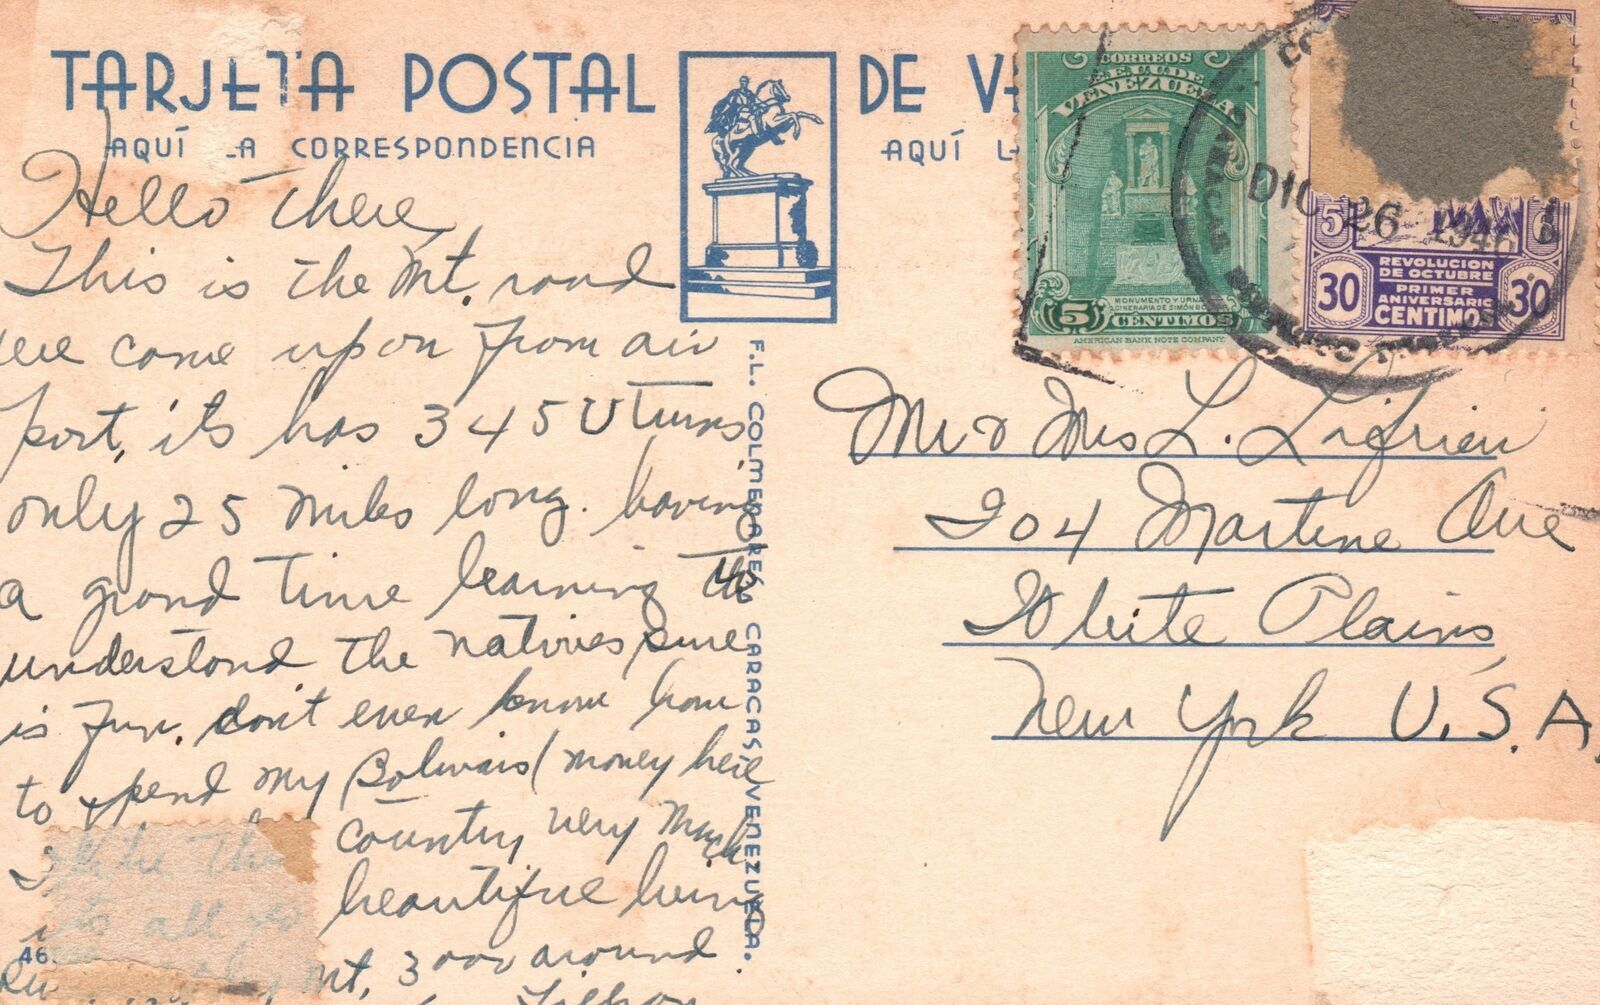 TARJETA POSTAL DE
AQUÍ LA CORRESPONDENCIA
AQUÍ
Hello There,
This is the Mt. road
we come upon from air
port, its has 345 U Turns
only 25 miles long. having
a grand time learning to
understand the natives, sure
is fun. don't even know how
to spend my Bolivais (money here
I like this country very much
its all beautiful being
Mt. 3000 around
F.L. COLMENARES CARACAS, VENEZUELA.
46
CORREOS
EE.UU. DE
VENEZUELA
MONUMENTO Y URNA
CINERARIA DE SIMÓN
5 CENTIMOS
AMERICAN BANK NOTE COMPANY
CARACAS
DIC 26 1946
30 30
REVOLUCION
DE OCTUBRE
PRIMER
ANIVERSARIO
CENTIMOS
Mr & Mrs L.
204 Martine Ave
White Plains,
New York U.S.A.